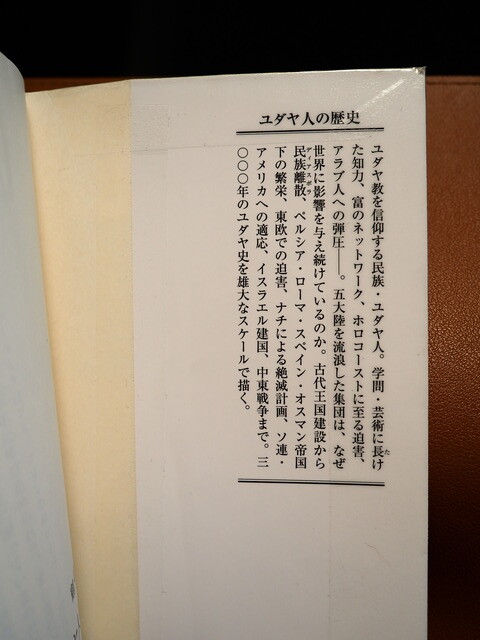 ユダヤ人の歴史
ユダヤ教を信仰する民族・ユダヤ人。学問・芸術に長け
た知力、富のネットワーク、ホロコーストに至る迫害、
アラブ人への弾圧――。五大陸を流浪した集団は、なぜ
世界に影響を与え続けているのか。古代王国建設から
民族離散、ペルシア・ローマ・スペイン・オスマン帝国
下の繁栄、東欧での迫害、ナチによる絶滅計画、ソ連・
アメリカへの適応、イスラエル建国、中東戦争まで。三
〇〇〇年のユダヤ史を雄大なスケールで描く。